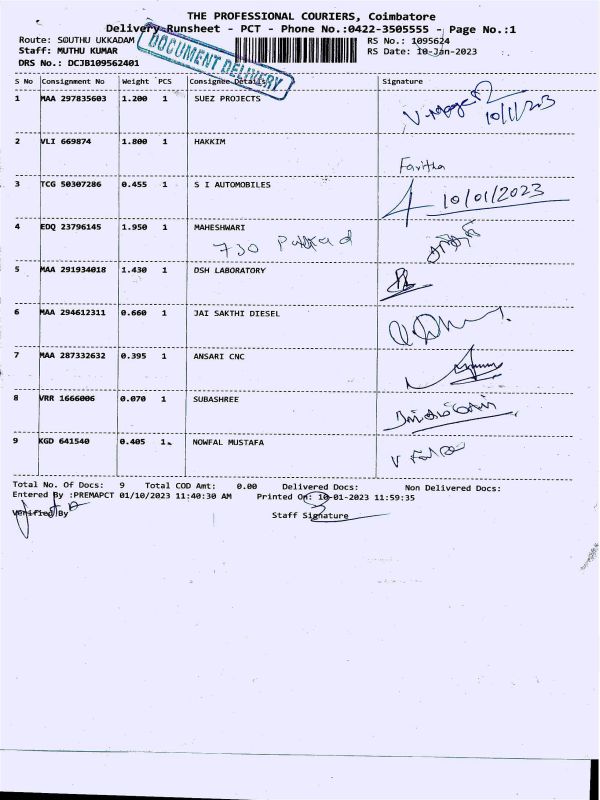 THE PROFESSIONAL COURIERS, Coimbatore
Delivery Runsheet - PCT - Phone No.:0422-3505555 - Page No.:1
Route: SOUTHU UKKADAM
RS No.: 1095624
Staff: MUTHU KUMAR
RS Date: 10-Jan-2023
DRS No.: DCJB109562401
DOCUMENT DELIVERY
S No Consignment No Weight PCS Consignee Details Signature
1 MAA 297835603 1.200 1 SUEZ PROJECTS
10/1/2023
2 VLI 669874 1.800 1 HAKKIM
Faritha
3 TCG 50307286 0.455 1 S I AUTOMOBILES
10/01/2023
4 EDQ 23796145 1.950 1 MAHESHWARI
730
5 MAA 291934018 1.430 1 DSH LABORATORY
6 MAA 294612311 0.660 1 JAI SAKTHI DIESEL
7 MAA 287332632 0.395 1 ANSARI CNC
8 VRR 1666006 0.070 1 SUBASHREE
9 KGD 641540 0.405 1 NOWFAL MUSTAFA
Total No. Of Docs: 9 Total COD Amt: 0.00 Delivered Docs: Non Delivered Docs:
Entered By :PREMAPCT 01/10/2023 11:40:30 AM Printed On: 10-01-2023 11:59:35
Verified By Staff Signature